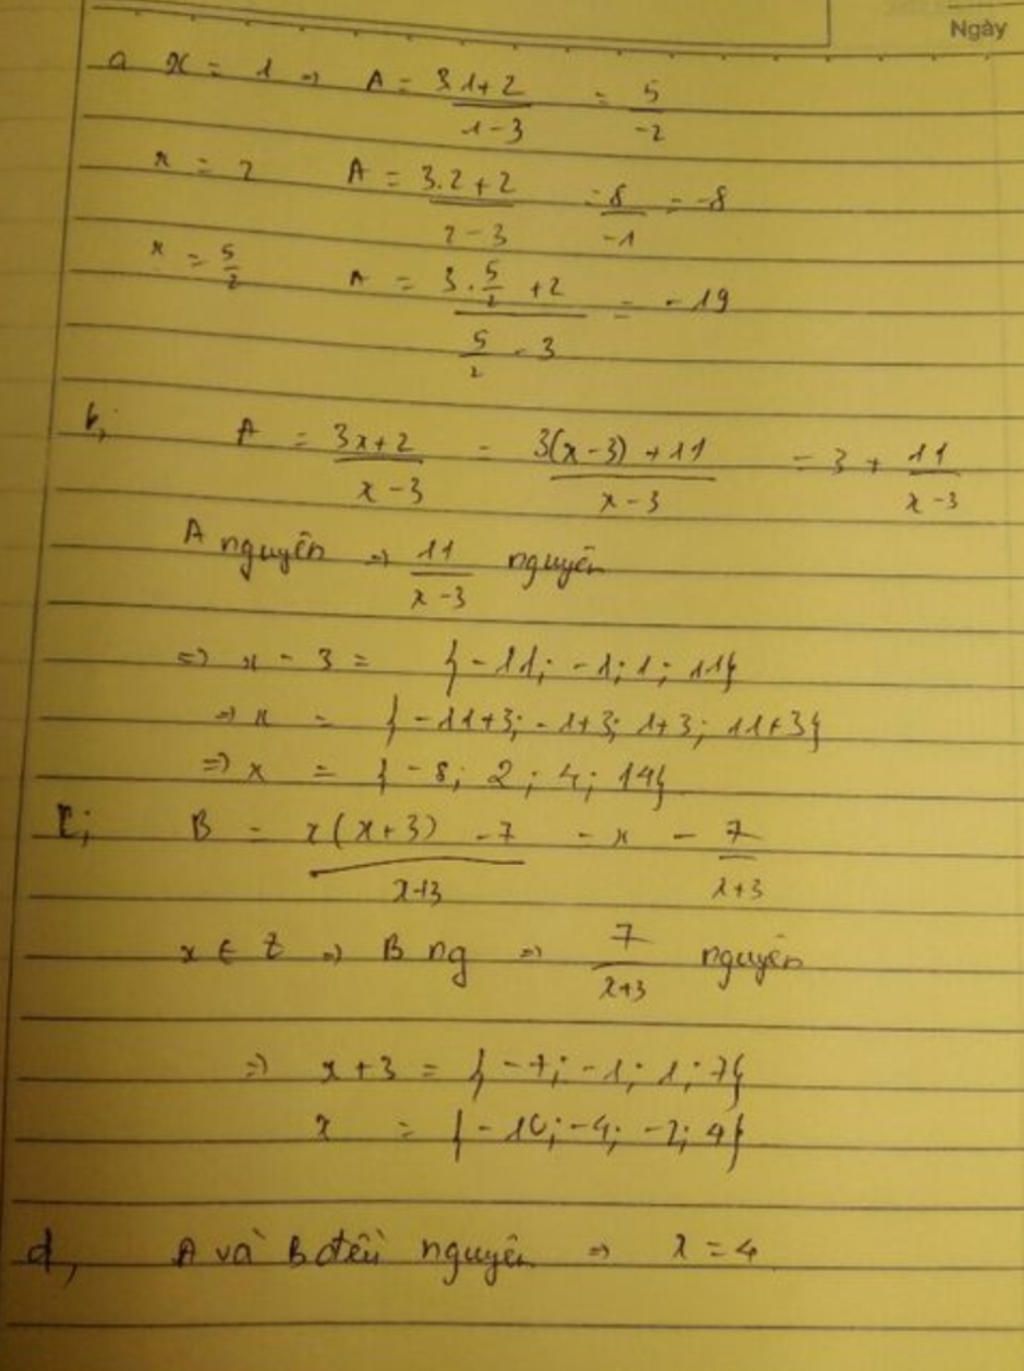 Ngày
a x = 1 => A = (3.1+2)/(1-3) = 5/-2
x = 2 A = (3.2+2)/(2-3) = 8/-1 = -8
x = 5/2 A = (3.5/2 +2)/(5/2 - 3) = -19
b, A = (3x+2)/(x-3) = (3(x-3)+11)/(x-3) = 3 + 11/(x-3)
A nguyên => 11/(x-3) nguyên
=> x - 3 = {-11; -1; 1; 11}
=> x = {-11+3; -1+3; 1+3; 11+3}
=> x = {-8; 2; 4; 14}
c; B = (x(x+3) -7)/(x+3) = x - 7/(x+3)
x ∈ Z => B ng => 7/(x+3) nguyên
=> x+3 = {-7; -1; 1; 7}
x = {-10; -4; -2; 4}
d, A và B đều nguyên => x = 4